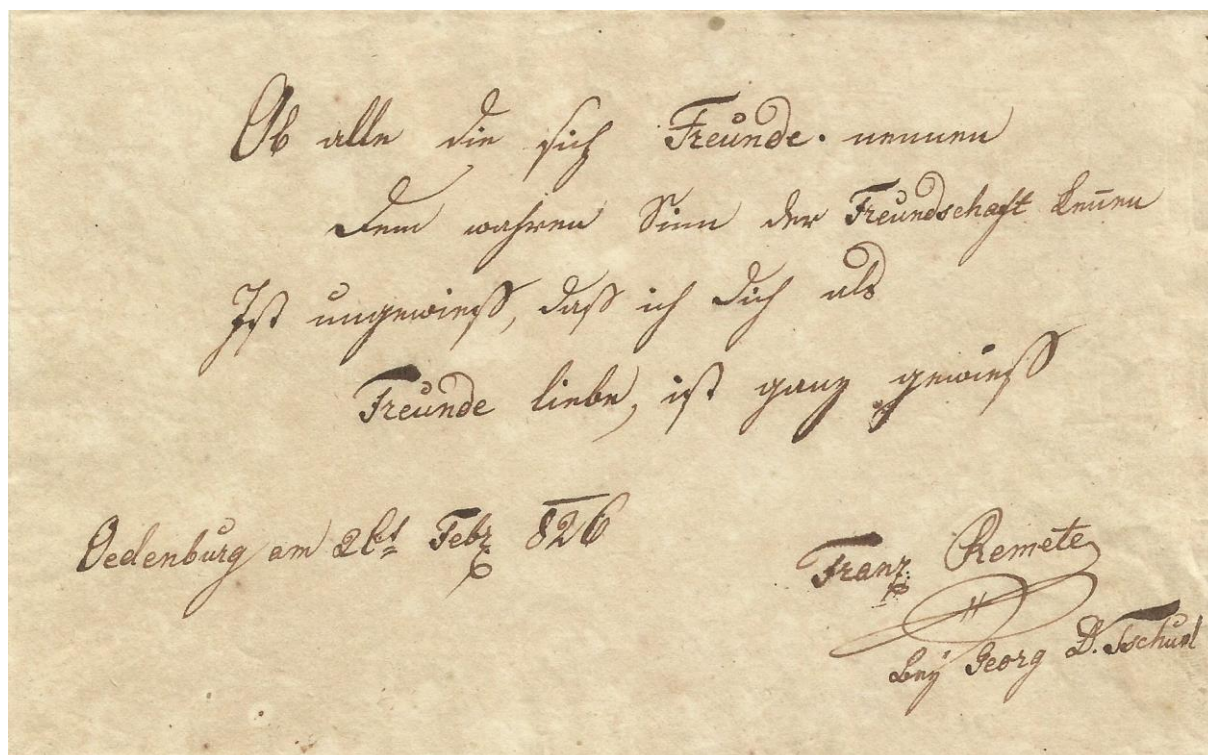 Ob alle die sich Freunde nennen
Dem wahren Sinn der Freundschaft keñen
Ist ungewieß, daß ich Dich als
Freunde liebe, ist ganz gewieß
Oedenburg am 26ᵗ Febr 826
Franz Remete
bey Georg D. Tschurl